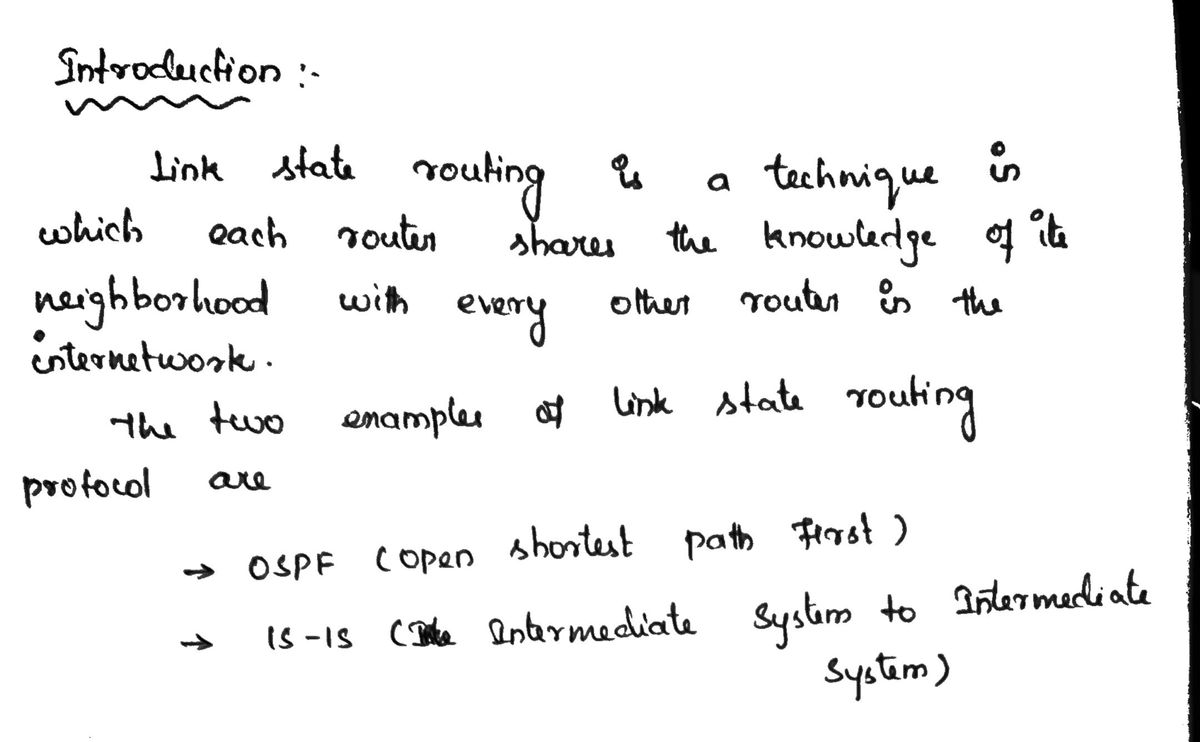 Introduction :-
Link state routing is a technique in
which each router shares the knowledge of its
neighborhood with every other router in the
internetwork.
The two examples of link state routing
protocol are
→ OSPF (Open shortest path First)
→ IS-IS (Intermediate System to Intermediate
System)